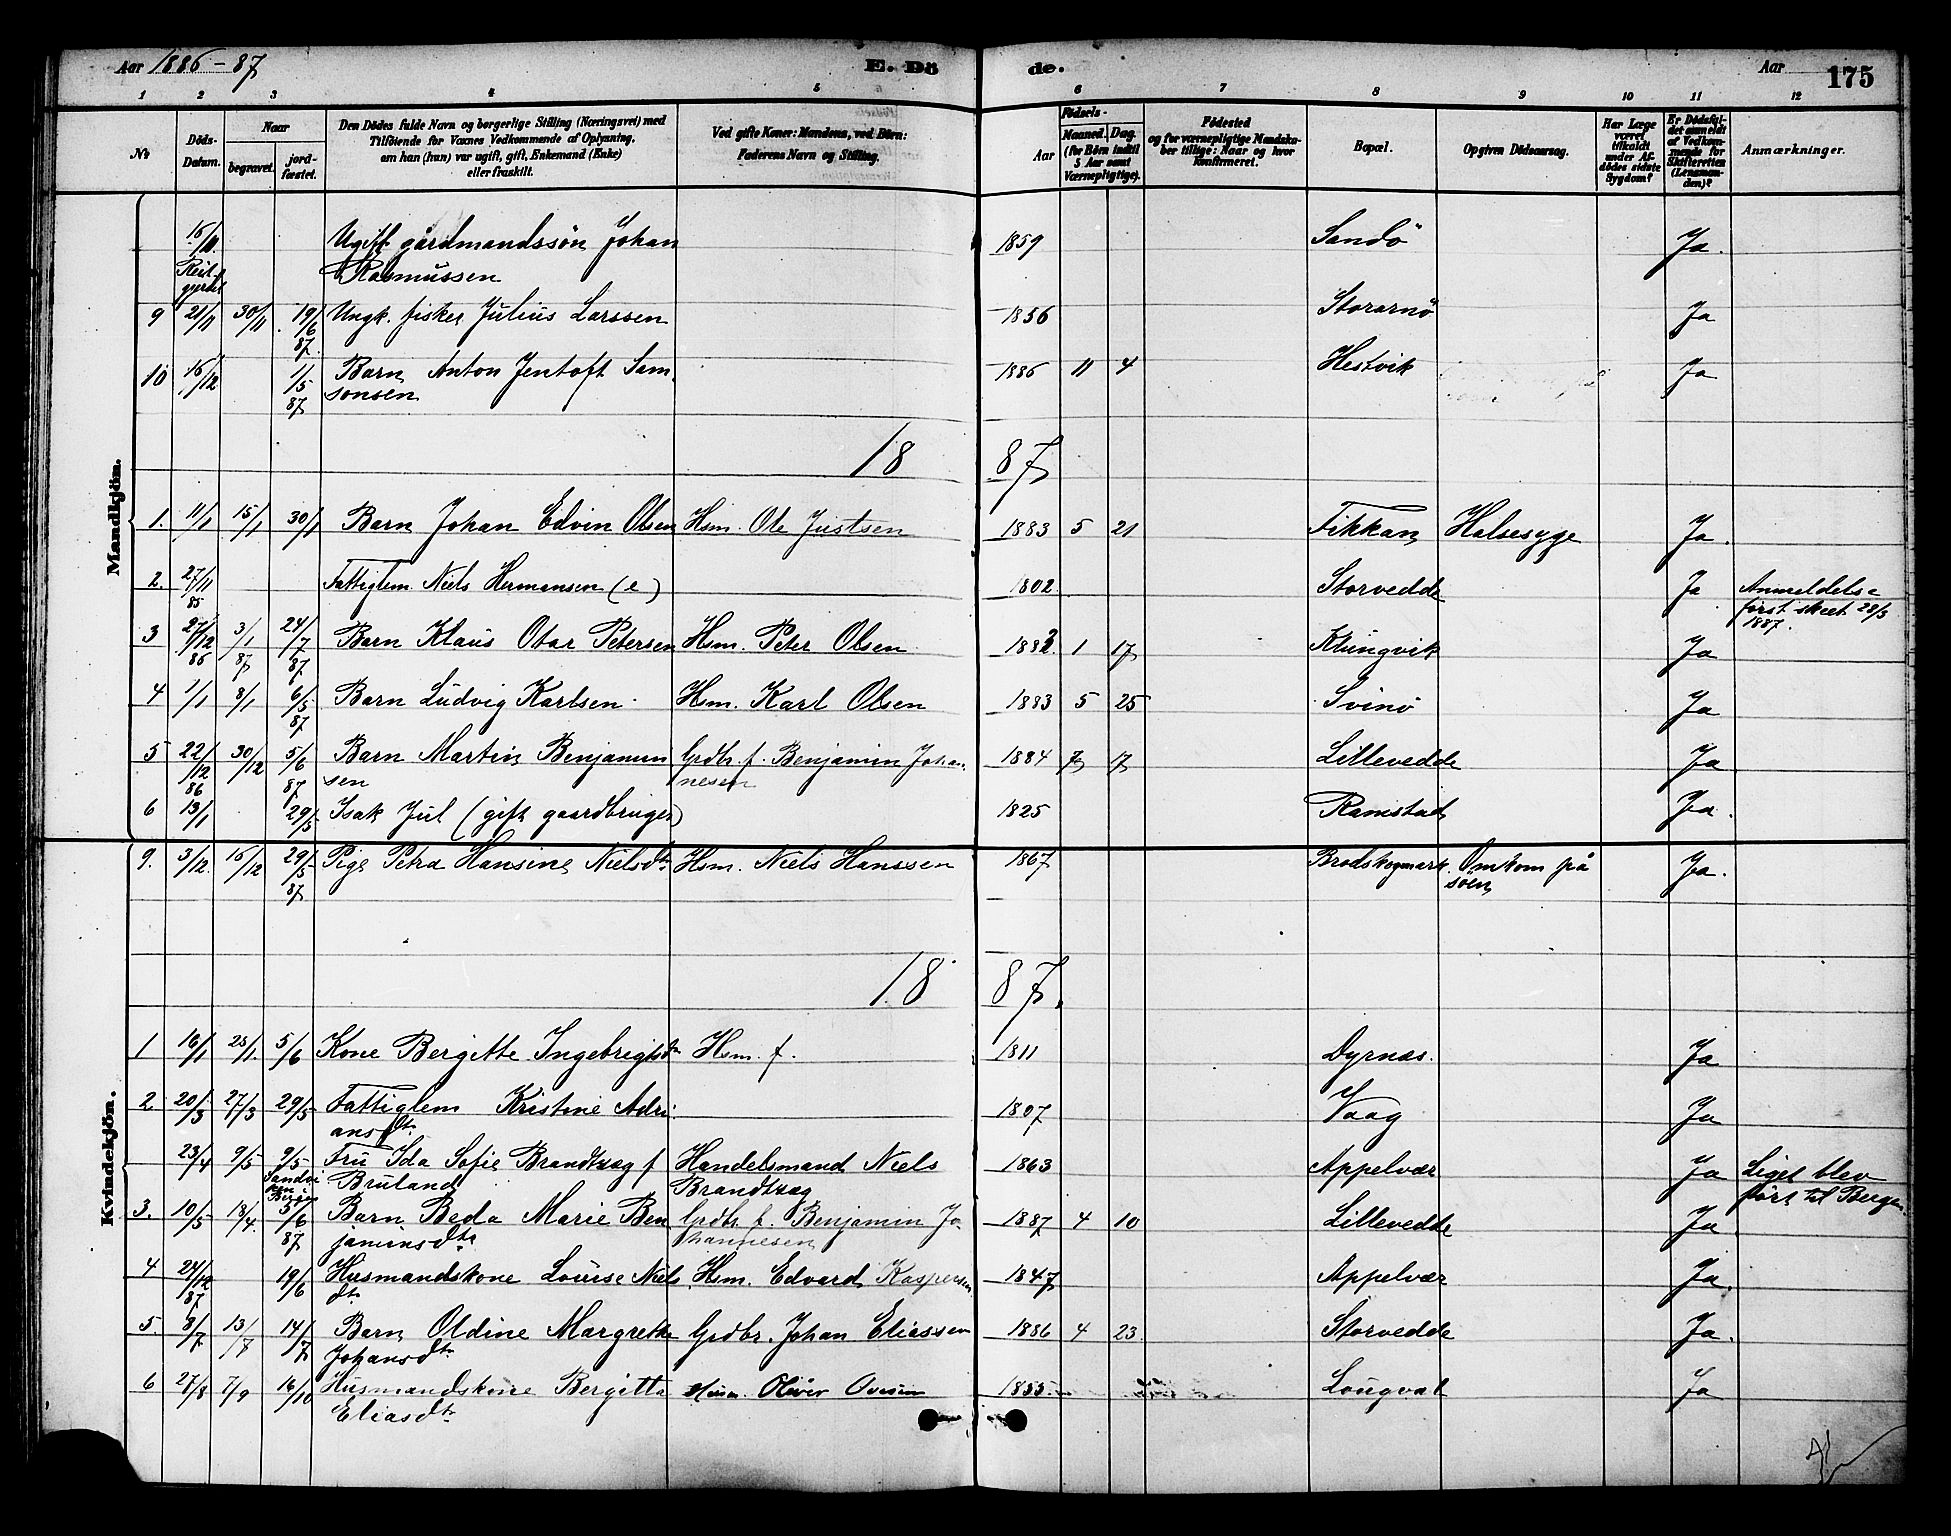 Aar 1886-87 E. Döde. Aar 175
1 2 3 4 5 6 7 8 9 10 11 12
№ Döds-Datum. Naar begravet. jordfæstet. Den Dödes fulde Navn og borgerlige Stilling (Næringsvei) med Tilföiende for Voxnes Vedkommende af Oplysning, om han (hun) var ugift, gift, Enkemand (Enke) eller fraskilt. Ved gifte Koner: Mandens, ved Börn: Faderens Navn og Stilling. Födsels- Aar Maaned. Dag. (for Börn indtil 5 Aar samt Værnepligtige). Födested og for værnepligtige Mandskaber tillige: Naar og hvor konfirmeret. Bopæl. Opgiven Dödsaarsag. Har Læge været tilkaldt under Afdödes sidste Sygdom? Er Dödsfaldet anmeldt af Vedkommende for Skifteretten (Lensmanden)? Anmærkninger.
Mandkjön.
15/10 Ugift gårdmandssön Johan 1859 Sandö Ja.
Rasmussen
9 21/11 30/11 19/6 87. Ungk. fisker Julius Larssen 1856 Storarnö Ja
10 16/12 1/5 87 Barn Anton Jentoft Sam 1886 11 4 Hestvik Ja
sonsen
18 87
1. 11/1 15/1 30/1 Barn Johan Edvin Olsen Hsm. Ole Justsen 1883 5 21 Fikkan Halsesyge Ja.
2. 27/11 85 Fattiglem Niels Hermansen (e) 1802 Storvedde Ja Anmeldelse
först skeet 28/3
1887.
3 27/12 86 3/1 87 24/7 87 Barn Klaus Otar Petersen Hsm. Peter Olsen 1882 1 17 Klungvik Ja
4 1/1 8/1 6/5 87 Barn Ludvig Karlsen Hsm. Karl Olsen 1883 5 25 Svinö Ja
5 22/12 86 30/12 5/6 87 Barn Martin Benjamin Grdbr. f. Benjamin Johan 1884 7 17 Lillevedde Ja
sen nesen
6 13/1 29/5 Isak Jul (gift gaardbruger) 1825 Ramstad Ja.
Kvindekjön.
9. 3/12. 16/12 29/5 87 Pige Petra Hansine Nielsdtr Hsm. Niels Hanssen 1867 Brodskogmark Omkom på Ja.
söen
18 87.
1 16/1 23/1. 5/6 Kone Bergitte Ingebrigtsdtr Hsm. f. 1811 Dyrnæs. Ja
2 20/3 27/3 29/5 Fattiglem Kristine Adri 1807 Vaag Ja
ansdtr.
23/4 9/5 9/5 Fru Ida Sofie Brandtzæg f Handelsmand Niels 1863 Appelvær Ja Liget blev
Bruland Brandtzæg fört til Bergen.
3. 10/5 18/4. 5/6 87 Barn Beda Marie Ben Grdbr. f. Benjamin Jo 1887 4 10 Lillevedde Ja
jaminsdtr hannesen
4 24/12 87 19/6 Husmandskone Louise Niels Hsm. Edvard Kaspersen 1847 Appelvær Ja.
dtr
5. 8/7 13/7 14/7 Barn Oldine Margrethe Grdbr. Johan Eliassen 1886 4 23. Storvedde Ja.
Johansdtr.
6 27/8 7/9 16/10 Husmandskone Bergitta Hsm. Oliver Ovesen 1855 Ja
Eliasdtr.